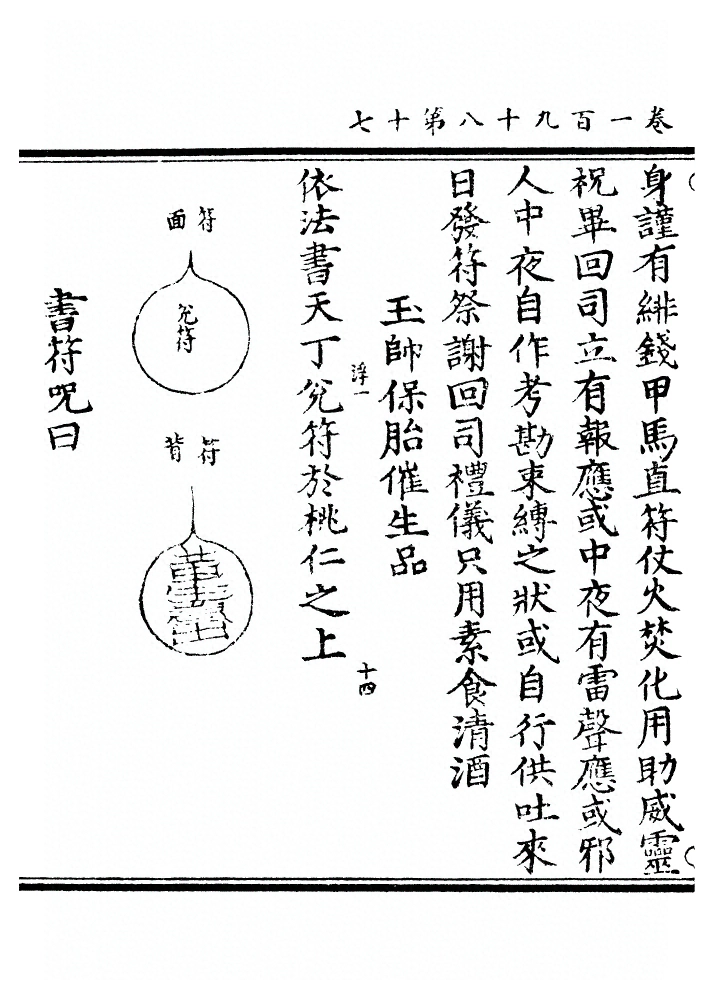 卷一百九十八第十七
身謹有緋錢甲馬直符仗火焚化用助威靈
祝畢回司立有報應或中夜有雷聲應或邪
人中夜自作考勘束縛之狀或自行供吐來
日發符祭謝回司禮儀只用素食清酒
玉帥保胎催生品
浮一
十四
依法書天丁兊符於桃仁之上
符面
兊符
符背
書符呪曰